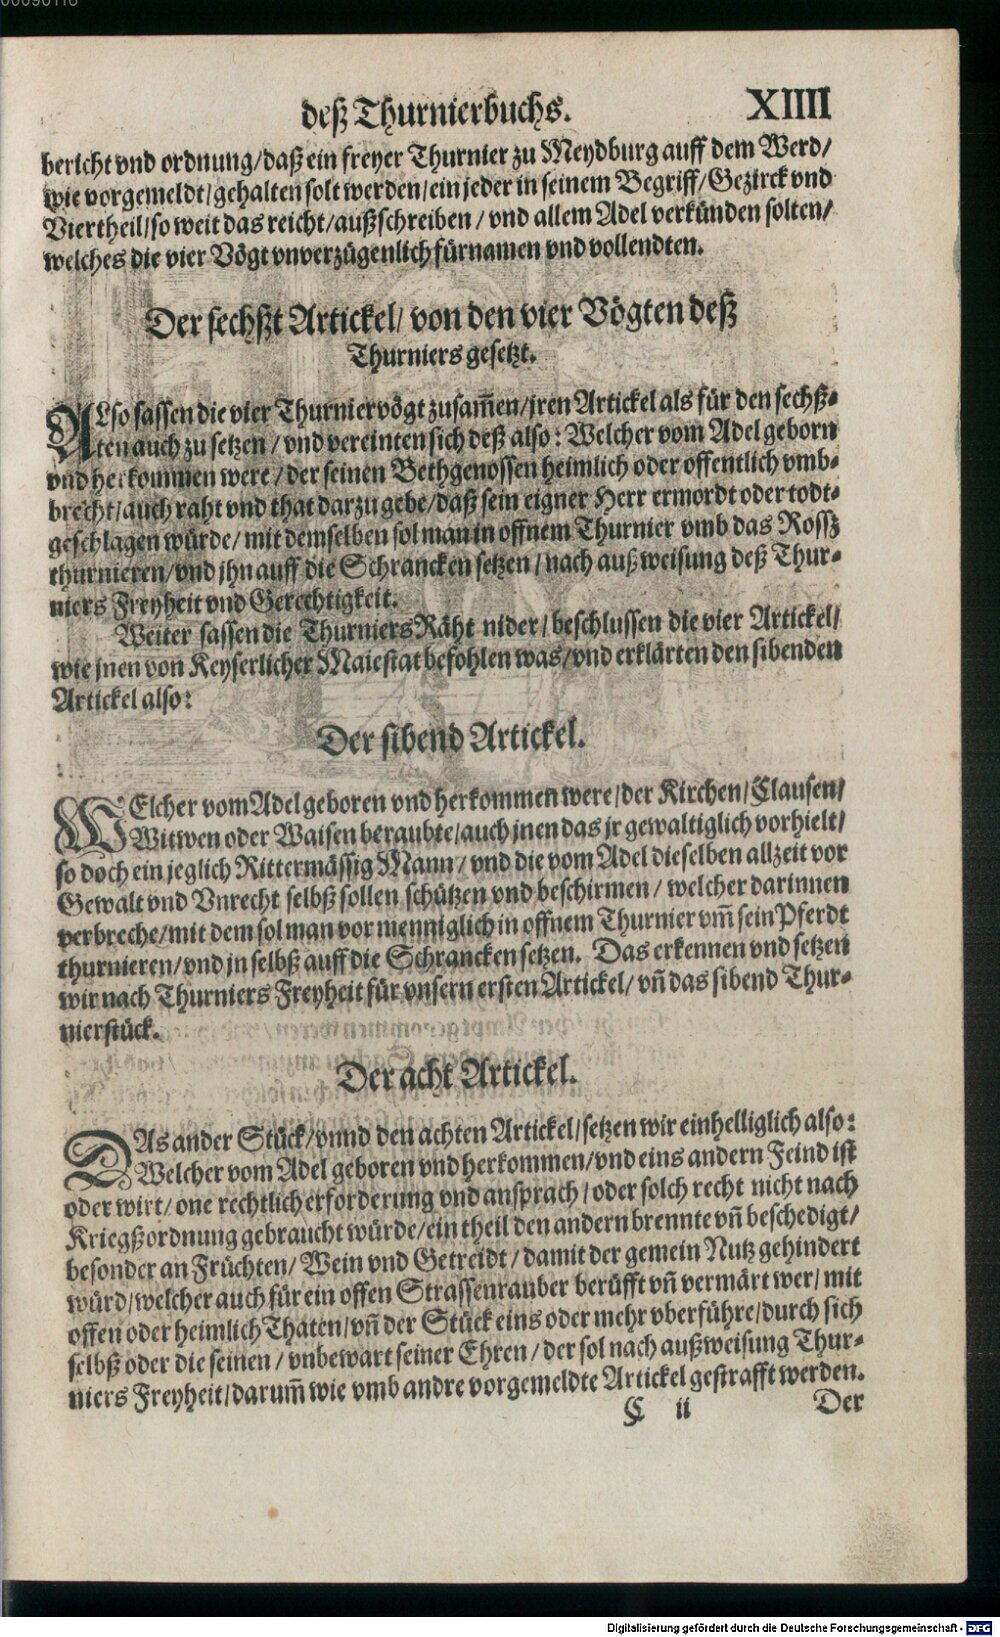 00090116
deß Thurnierbuchs. XIIII
bericht vnd ordnung/daß ein freyer Thurnier zu Meydburg auff dem Werd/
wie vorgemeldt/gehalten solt werden/ein jeder in seinem Begriff/Gezirck vnd
Viertheil/so weit das reicht/außschreiben/vnd allem Adel verkünden solten/
welches die vier Vögt vnverzügenlich fürnamen vnd vollendten.
Der sechßt Artickel/von den vier Vögten deß
Thurniers gesetzt.
ALso sassen die vier Thurniervögt zusam̃en/jren Artickel als für den sechß-
ten auch zu setzen/vnd vereinten sich deß also: Welcher vom Adel geborn
vnd herkommen were/der seinen Bethgenossen heimlich oder offentlich vmb-
brecht/auch raht vnd that darzu gebe/daß sein eigner Herr ermordt oder todt-
geschlagen würde/mit demselben sol man in offnem Thurnier vmb das Rossz
thurnieren/vnd jhn auff die Schrancken setzen/nach außweisung deß Thur-
niers Freyheit vnd Gerechtigkeit.
Weiter sassen die Thurniers Räht nider/beschlussen die vier Artickel/
wie jnen von Keyserlicher Maiestat befohlen was/vnd erklärten den sibenden
Artickel also:
Der sibend Artickel.
WElcher vom Adel geboren vnd herkommen were/der Kirchen/Clausen/
Witwen oder Waisen beraubte/auch jnen das jr gewaltiglich vorhielt/
so doch ein jeglich Rittermässig Mann/vnd die vom Adel dieselben allzeit vor
Gewalt vnd Vnrecht selbß sollen schützen vnd beschirmen/welcher darinnen
verbreche/mit dem sol man vor menniglich in offnem Thurnier vm̃ sein Pferdt
thurnieren/vnd jn selbß auff die Schrancken setzen. Das erkennen vnd setzen
wir nach Thurniers Freyheit für vnsern ersten Artickel/vñ das sibend Thur-
nierstück.
Der acht Artickel.
DAs ander Stück/vnnd den achten Artickel/setzen wir einhelliglich also:
Welcher vom Adel geboren vnd herkommen/vnd eins andern Feind ist
oder wirt/one rechtlich erforderung vnd ansprach/oder solch recht nicht nach
Kriegßordnung gebraucht würde/ein theil den andern brennte vñ beschedigt/
besonder an Früchten/Wein vnd Getreidt/damit der gemein Nutz gehindert
würd/welcher auch für ein offen Strassenrauber berüfft vñ vermärt wer/mit
offen oder heimlich Thaten/vñ der Stück eins oder mehr vberführe/durch sich
selbß oder die seinen/vnbewart seiner Ehren/der sol nach außweisung Thur-
niers Freyheit/darum̃ wie vmb andre vorgemeldte Artickel gestrafft werden.
C ii Der
Digitalisierung gefördert durch die Deutsche Forschungsgemeinschaft - DFG